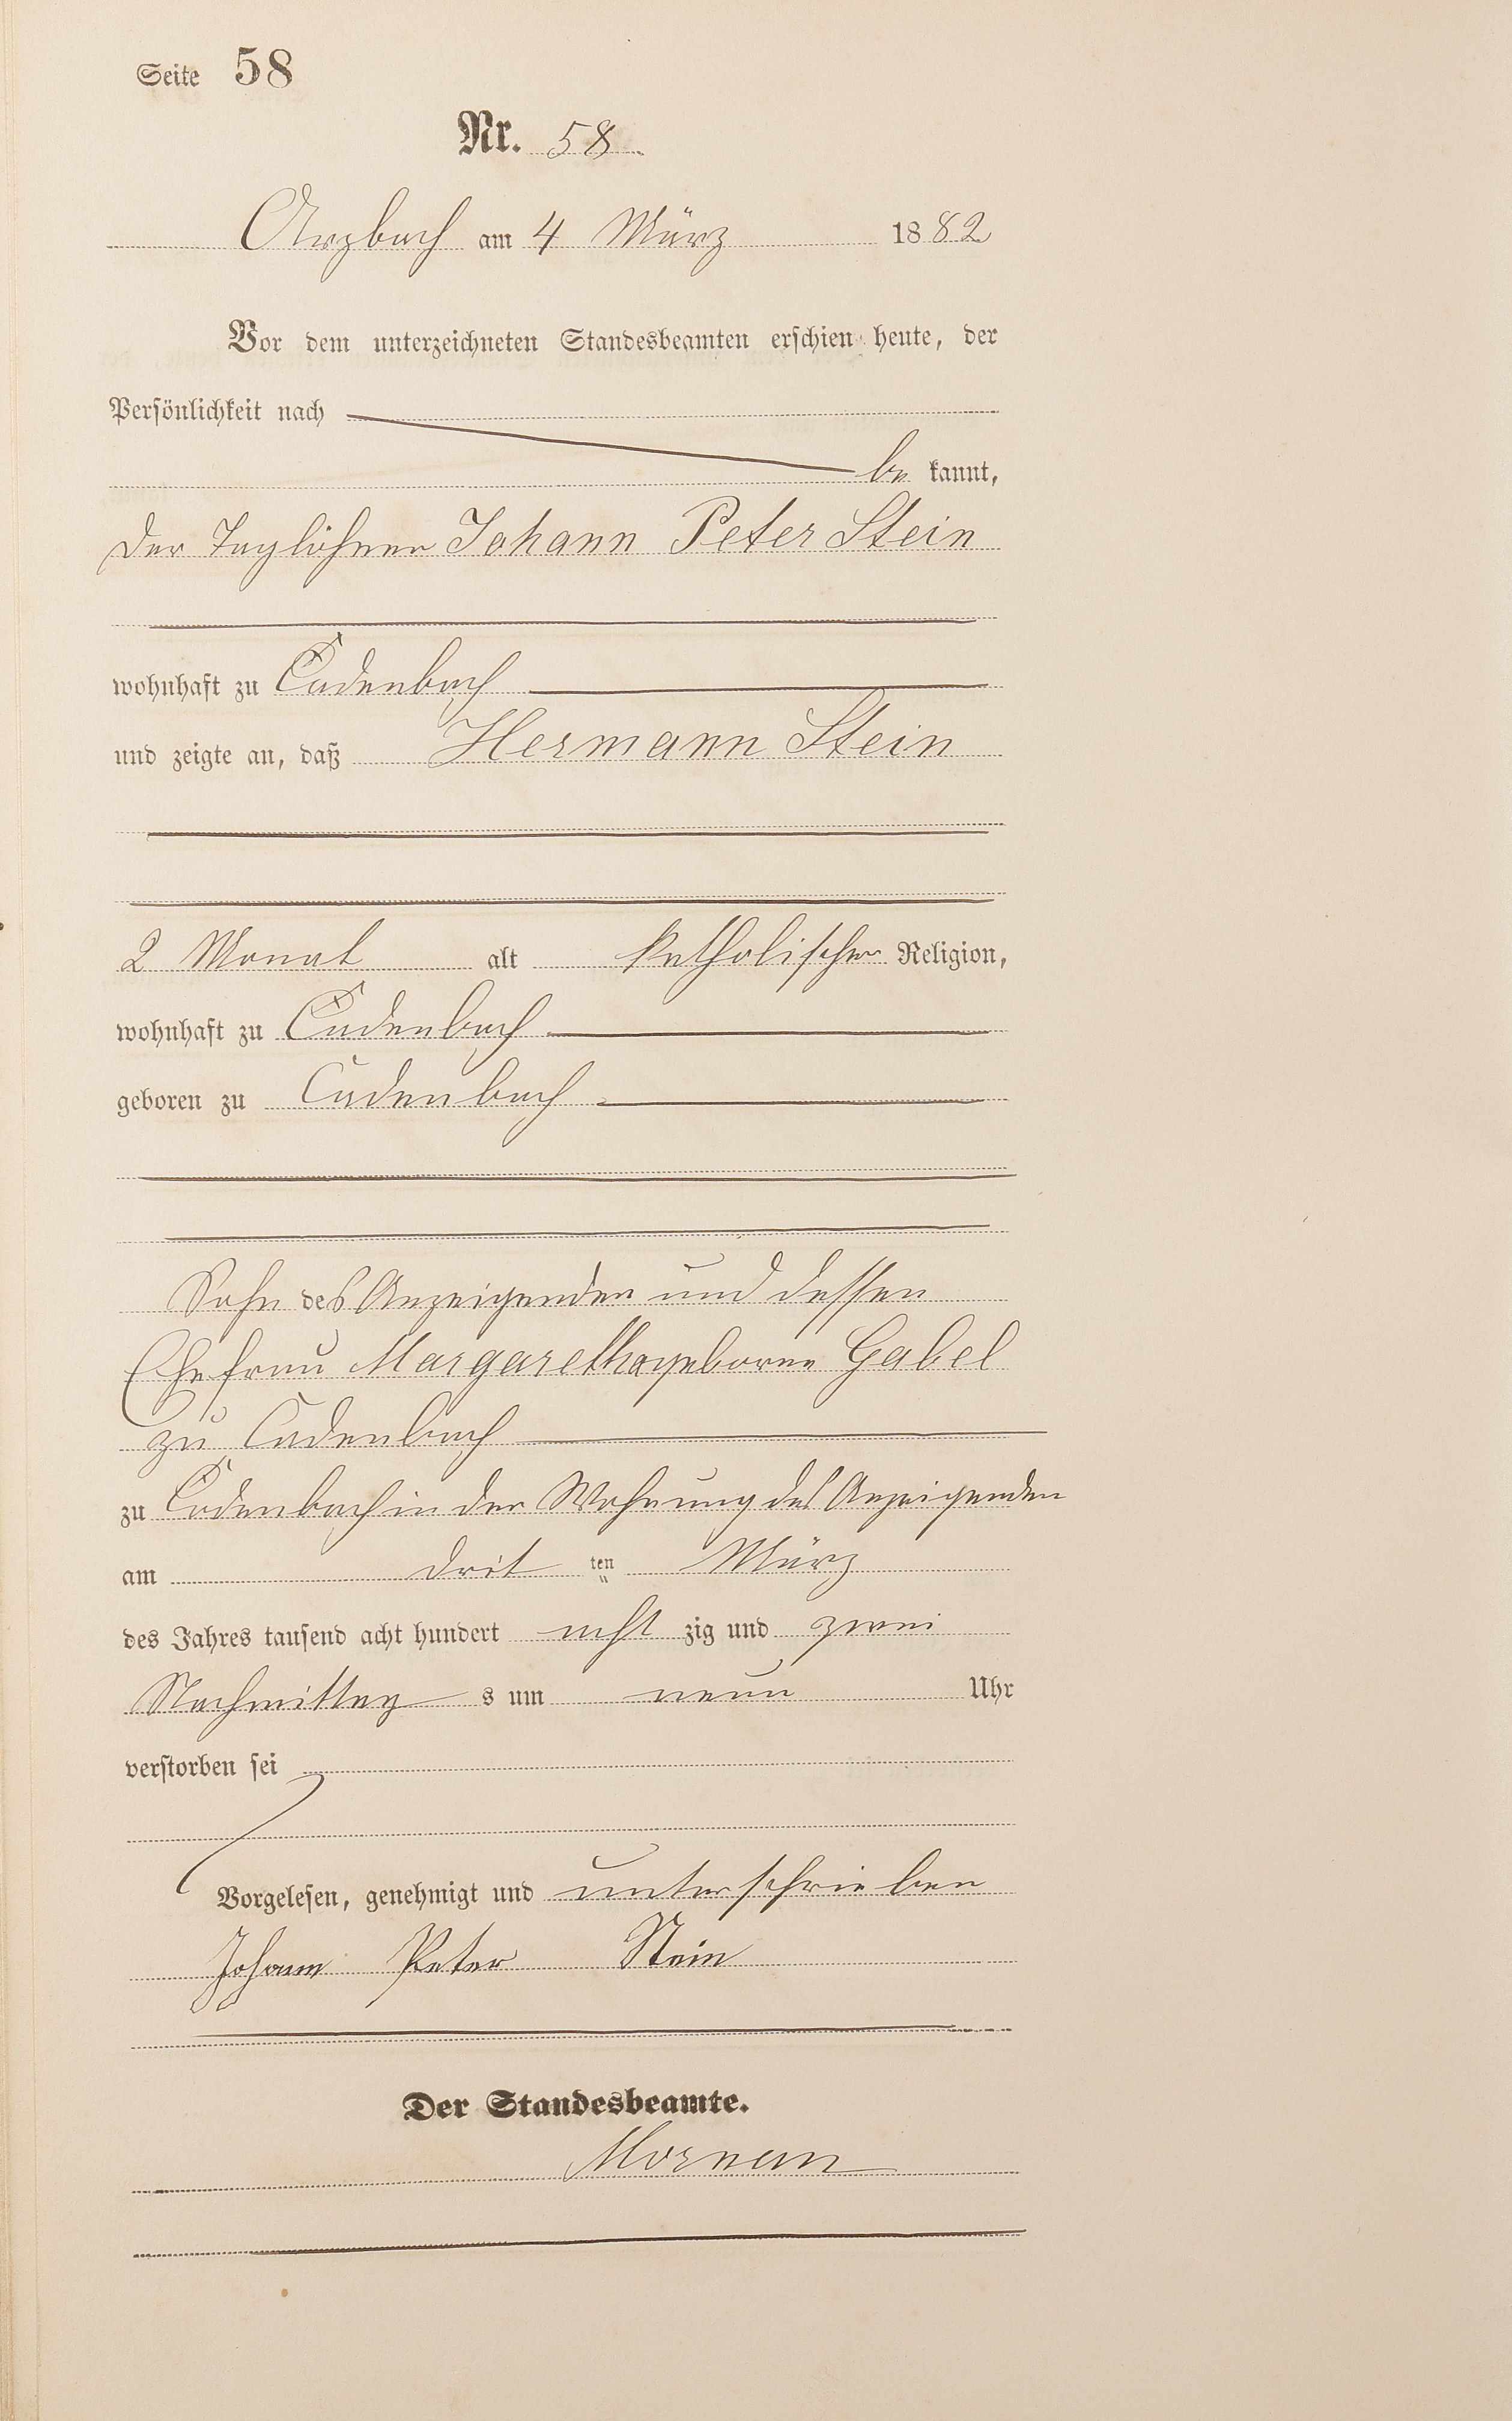 Seite 58
Nr. 58
Arzbach am 4 März 1882
Vor dem unterzeichneten Standesbeamten erschien heute, der
Persönlichkeit nach
be kannt,
der Taglöhner Johann Peter Stein
wohnhaft zu Cadenbach
und zeigte an, daß Hermann Stein
2 Monat alt katholischer Religion,
wohnhaft zu Cadenbach
geboren zu Cadenbach
Sohn des Anzeigenden und dessen
Ehefrau Margaretha geborne Gabel
zu Cadenbach
zu Cadenbach in der Wohnung des Anzeigenden
am drit ten März
des Jahres tausend acht hundert acht zig und zwei
Nachmittag s um neun Uhr
verstorben sei
Vorgelesen, genehmigt und unterschrieben
Johann Peter Stein
Der Standesbeamte.